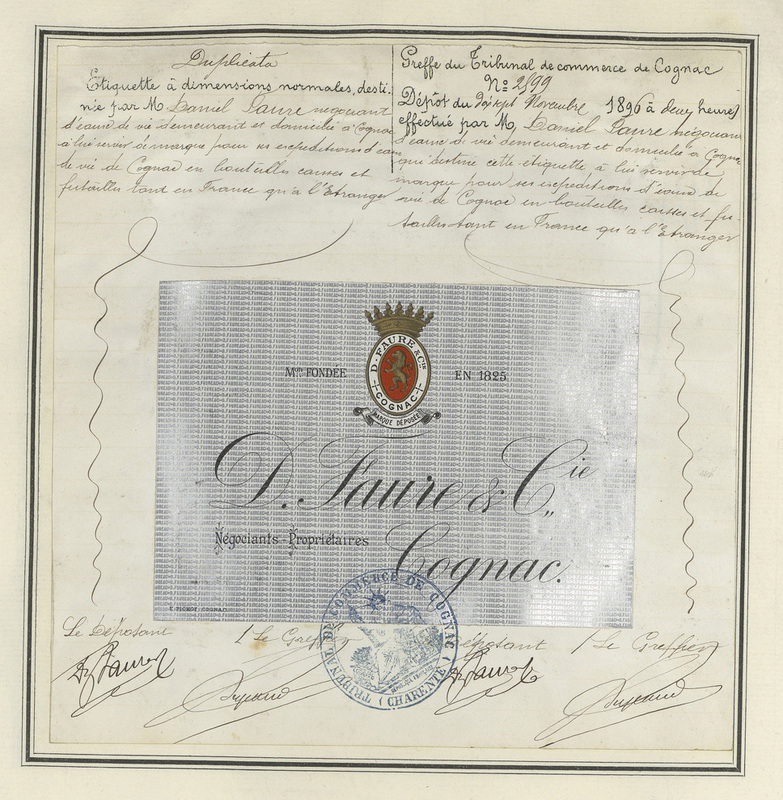 Duplicata
Etiquette à dimensions normales, desti-
née par M. Daniel Faure négociant
d'eau de vie demeurant et domicilié à Cognac
à lui servir de marque pour ses expéditions d'eau
de vie de Cognac en bouteilles caisses et
futailles tant en France qu'à l'Etranger
Greffe du Tribunal de commerce de Cognac
No 2199
Dépôt du dix sept Novembre 1896 à deux heures
effectué par M. Daniel Faure négociant
d'eau de vie demeurant et domicilié à Cognac
qui destine cette étiquette, à lui servir de
marque pour ses expéditions d'eau de
vie de Cognac en bouteilles caisses et fu-
tailles tant en France qu'à l'Etranger
D. FAURE & Cie
COGNAC
MARQUE DÉPOSÉE
Mon FONDÉE EN 1825
D. Faure & Cie
Négociants-Propriétaires
Cognac.
TRIBUNAL DE COMMERCE DE COGNAC (CHARENTE)
Le Déposant
Le Greffier
D. Faure
déposant
Le Greffier
D. Faure